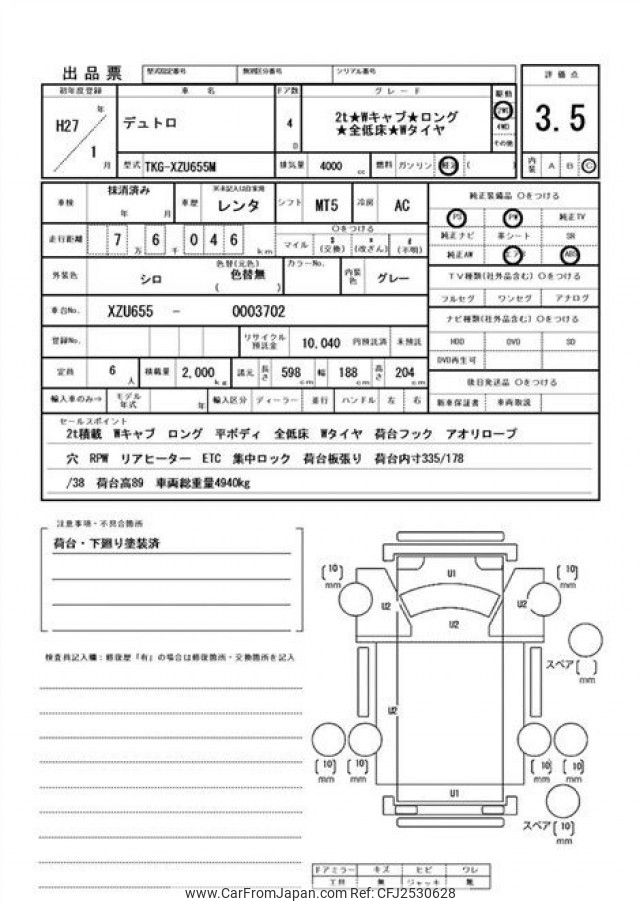 出品票 型式指定番号 類別区分番号 シリアル番号
初年度登録 車名 ドア数 グレード 駆動 評価点
H27年 デュトロ 4D 2t★Wキャブ★ロング 2WD 3.5
★全低床★Wタイヤ 4WD
その他
1月 型式 TKG-XZU655M 排気量 4000cc 燃料 ガソリン 軽油 ( ) 内装 A B C
車検 抹消済み 年 月 車歴 ※未記入は自家用 レンタ シフト MT5 冷房 AC 純正装備品 〇をつける
PS PW 純正TV
走行距離 7万6千046km 〇をつける
マイル $(交換) *(改ざん) #(不明)
純正ナビ 革シート SR
純正AW エアB ABS
外装色 シロ 色替(元色) 色替無 ( ) カラーNo. 内装色 グレー
TV種類(社外品含む)〇をつける
フルセグ ワンセグ アナログ
車台No. XZU655 - 0003702
ナビ種類(社外品含む)〇をつける
登録No. リサイクル預託金 10,040 円預託済 未預託
HDD DVD SD
DVD再生可
定員 6人 積載量 2,000kg 諸元 長さ 598cm 幅 188cm 高さ 204cm
後日発送品 〇をつける
輸入車のみ⇒ モデル年式 年 輸入区分 ディーラー 並行 ハンドル 左 右 新車保証書 車両取説
セールスポイント
2t積載 Wキャブ ロング 平ボディ 全低床 Wタイヤ 荷台フック アオリロープ
穴 RPW リアヒーター ETC 集中ロック 荷台板張り 荷台内寸335/178
/38 荷台高89 車両総重量4940kg
注意事項・不具合箇所
荷台・下廻り塗装済
検査員記入欄:修復歴「有」の場合は修復箇所・交換箇所を記入
U1
(10)mm (10)mm
U2 U2
U2
スペア( )mm
U2
(10)mm (10)mm (10)mm (10)mm
U1
スペア(10)mm
ドアミラー キズ ヒビ ワレ
工具 無 ジャッキ 無
www.CarFromJapan.com - CFJ2530628